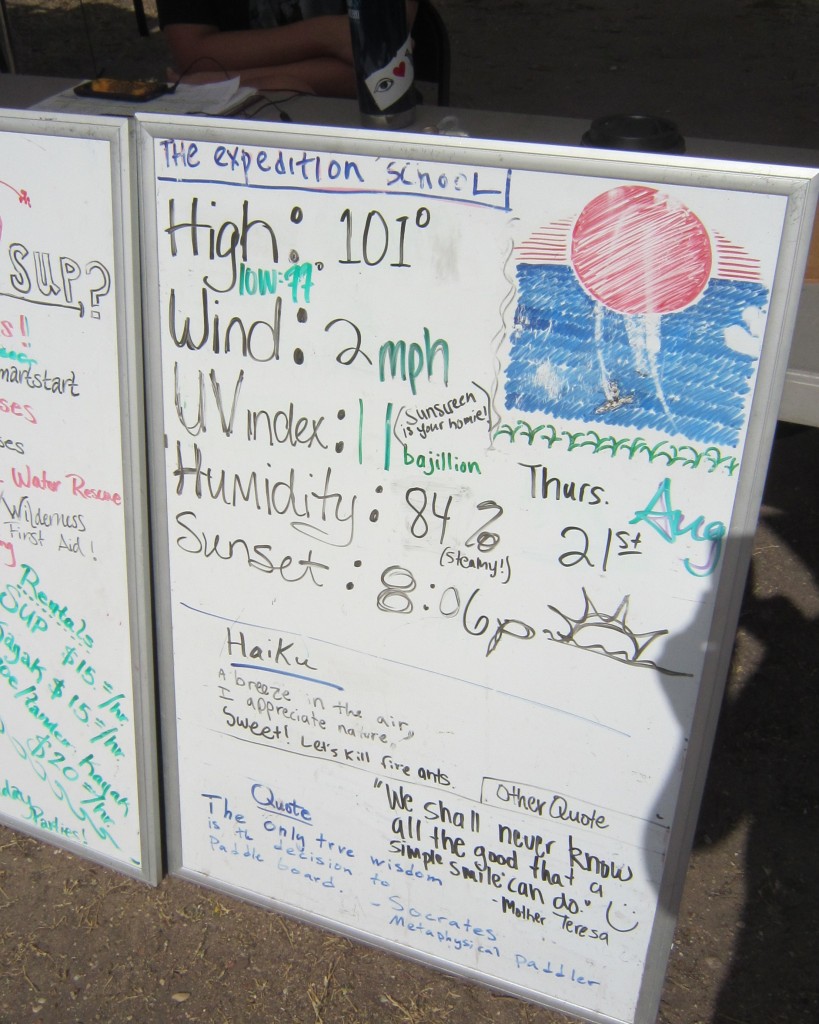 SUP?
smartstart
Water Rescue
Wilderness
First Aid!
Rentals
SUP $15
Kayak $15
$20
The expedition school
High: 101°
low: 77°
Wind: 2 mph
UV index: 11 bajillion
(Sunscreen
is your homie!)
Humidity: 84%
(steamy!)
Sunset: 8:06p
Thurs.
21st Aug
Haiku
A breeze in the air,
I appreciate nature,
Sweet! Let's kill fire ants.
Quote
The only true wisdom
is the decision to
paddle board.
- Socrates
metaphysical paddler
Other Quote
"We shall never know
all the good that a
simple smile can do."
- Mother Teresa (: